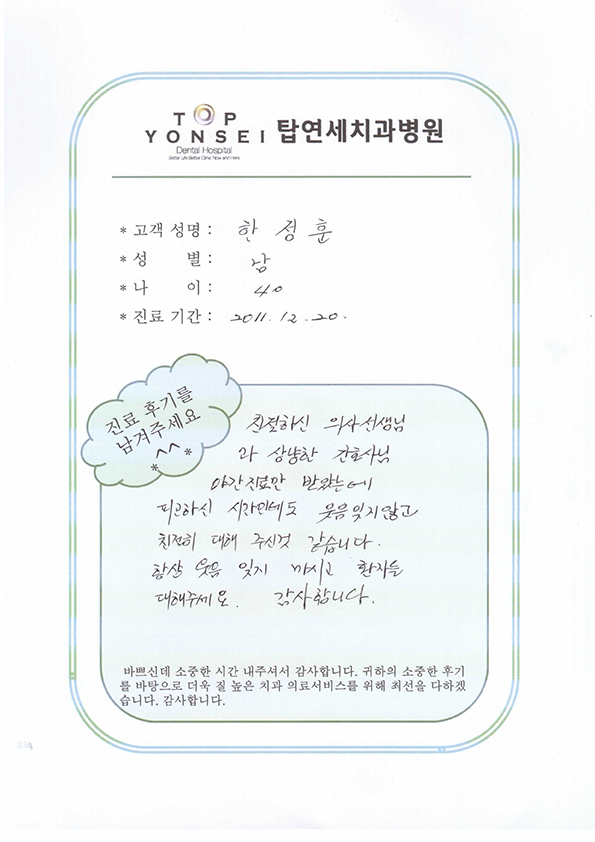 TOP
YONSEI 탑연세치과병원
Dental Hospital
Better Life Better Clinic Now and Here
* 고객 성명 : 한 정 훈
* 성 별 : 남
* 나 이 : 40
* 진료 기간 : 2011. 12. 20.
진료 후기를
남겨주세요
*^^*
친절하신 의사선생님
과 상냥한 간호사님
야간진료만 받았는데
피곤하신 시간인데도 웃음잊지않고
친절히 대해 주신것 같습니다.
항상 웃음 잊지 마시고 환자들
대해주세요. 감사합니다.
바쁘신데 소중한 시간 내주셔서 감사합니다. 귀하의 소중한 후기
를 바탕으로 더욱 질 높은 치과 의료서비스를 위해 최선을 다하겠
습니다. 감사합니다.